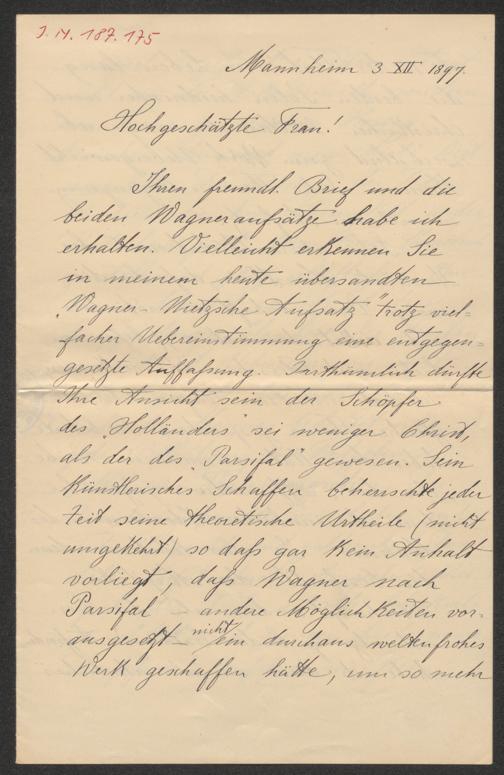 J. N. 187.175
Mannheim 3 XII 1897.
Hochgeschätzte Frau!
Ihren freundl. Brief und die
beiden Wagneraufsätze habe ich
erhalten. Vielleicht erkennen Sie
in meinem heute übersandten
„Wagner-Nietzsche Aufsatz“ trotz viel=
facher Uebereinstimmung eine entgegen=
gesetzte Auffaßung. Irrthümlich dürfte
Ihre Ansicht sein der Schöpfer
des „Holländers“ sei weniger Christ,
als der des „Parsifal“ gewesen. Sein
künstlerisches Schaffen beherrschte jeder
Zeit seine theoretische Urtheile (nicht
umgekehrt) so daß gar kein Anhalt
vorliegt, daß Wagner nach
Parsifal – andere Möglichkeiten vor-
ausgesetzt – nicht ein durchaus weltenfrohes
Werk geschaffen hätte, um so mehr